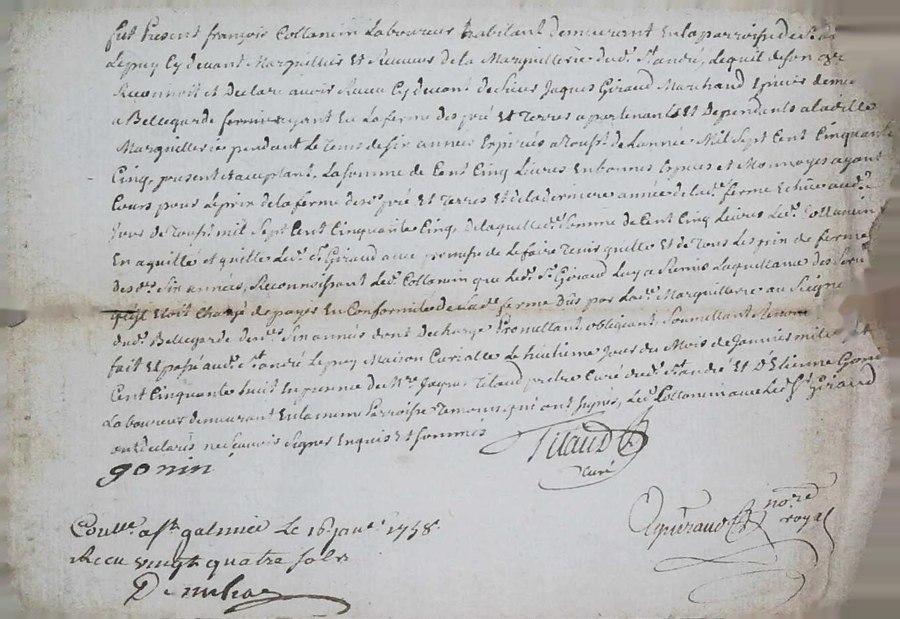 fut Present françois Collonin Laboureur habitant demeurant En la parroisse de St
Lepuy Cy devant Marguillier Et Luminier de la Marguillerie dud. St. andré, Lequel de son gré
Reconnoit et declare avoir Receu Cy devant de Sieur Jaques Giraud Marchand
a Bellegarde fermier ayant En La ferme des pré Et Terres apartenants Et Dependants a laditte
Marguillerie pendant Le tems de six années Expirées a Touss. de L'année Mil Sept Cent Cinquante
Cinq, present et acceptant. La somme de Cent Cinq Livres En bonnes Especes et Monnoyes ayant
Cours pour Le prix de la ferme desd. pré et Terres Et de la derniere année de lad. ferme Echue aud.
Jour de Touss. mil Sept Cent Cinquante Cinq, De laquelle d. Somme de Cent Cinq Livres Led. Collonin
En a quitté et quitte Led. Sr. Giraud avec promesse de Le faire tenir quitte Et de Tous Les prix de ferme
desd. Six années, Reconnoissant Led. Collonin que Led. Sr. Giraud Luy a Remis La quittance des
qu'il Etoit Chargé de payer En Conformité de lad. ferme Dûs par Lad. Marguillerie au Seigne
dud. Bellegarde desd. Six années dont decharge Promettant obligeant Soumettant Renon
fait Et passé aud. St. andré Lepuy Maison Curialle Le huitieme Jour du Mois de Janvier mil Sept
Cent Cinquante huit En presence de Mre. Jaques Titaud pretre Curé dud. St andré Et D'Etienne Gonin
Laboureur demeurant En la meme Parroisse Temoins qui ont signés, Led. Collonin avec Led. Sr. Giraud
ont declarés ne Scavoir Signer Enquis Et Sommes
gonin
Titaud
Curé
nore.
royal
Conlle. a St. galmier Le 16 janr. 1758
Receu vingt quatre sols